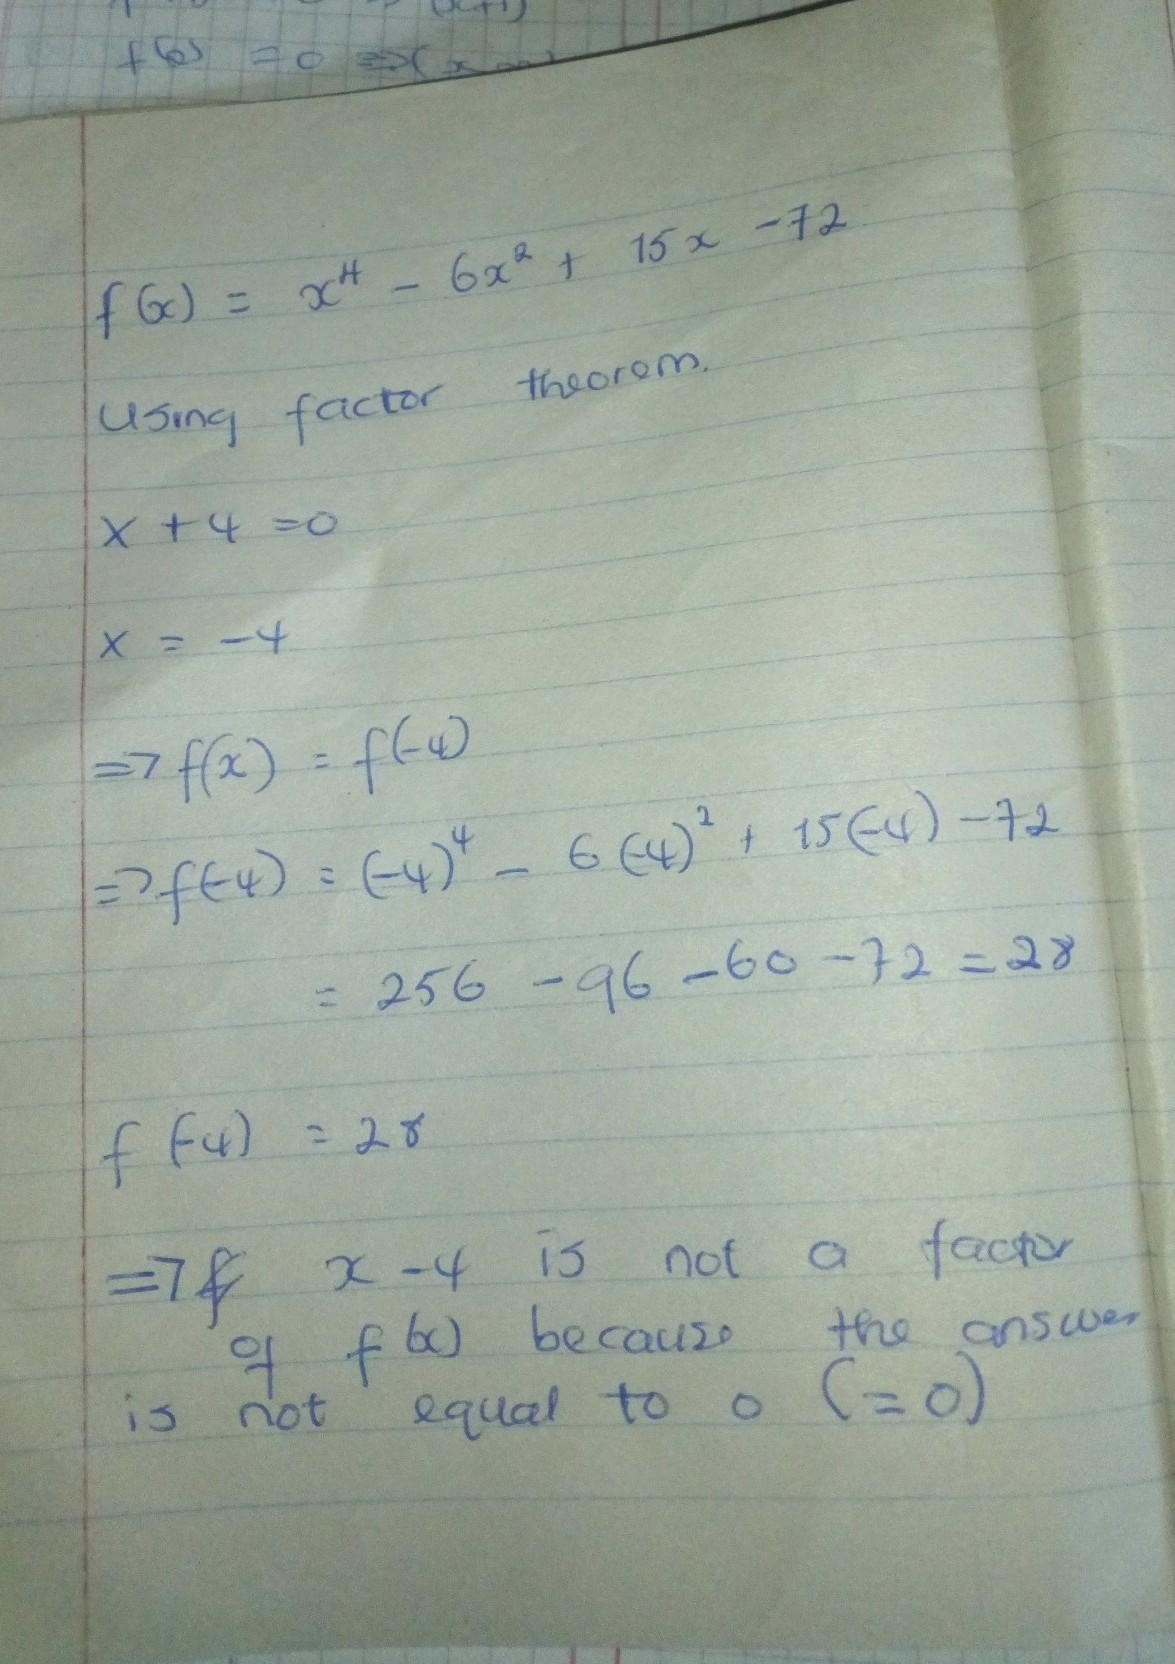 f(x) = 0 ⇒ (x
f(x) = x⁴ - 6x² + 15x - 72
Using factor theorem.
x + 4 = 0
x = -4
⇒ f(x) = f(-4)
⇒ f(-4) = (-4)⁴ - 6(-4)² + 15(-4) - 72
= 256 - 96 - 60 - 72 = 28
f(-4) = 28
⇒ x - 4 is not a factor
of f(x) because the answer
is not equal to 0 (= 0)